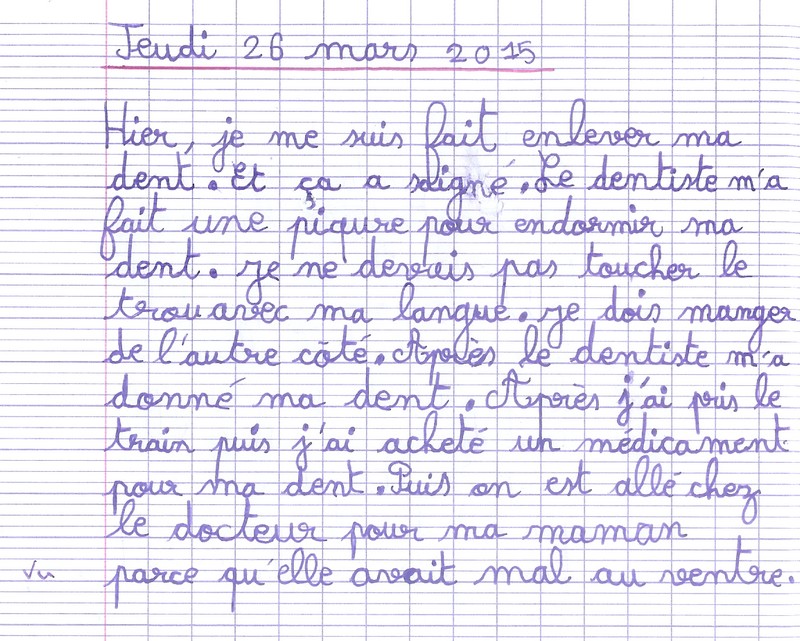 Jeudi 26 mars 2015
Hier, je me suis fait enlever ma
dent. Et ça a saigné. Le dentiste m'a
fait une piqure pour endormir ma
dent. Je ne devais pas toucher le
trou avec ma langue. Je dois manger
de l'autre côté. Après le dentiste m'a
donné ma dent. Après j'ai pris le
train puis j'ai acheté un médicament
pour ma dent. Puis on est allé chez
le docteur pour ma maman
Vu parce qu'elle avait mal au ventre.